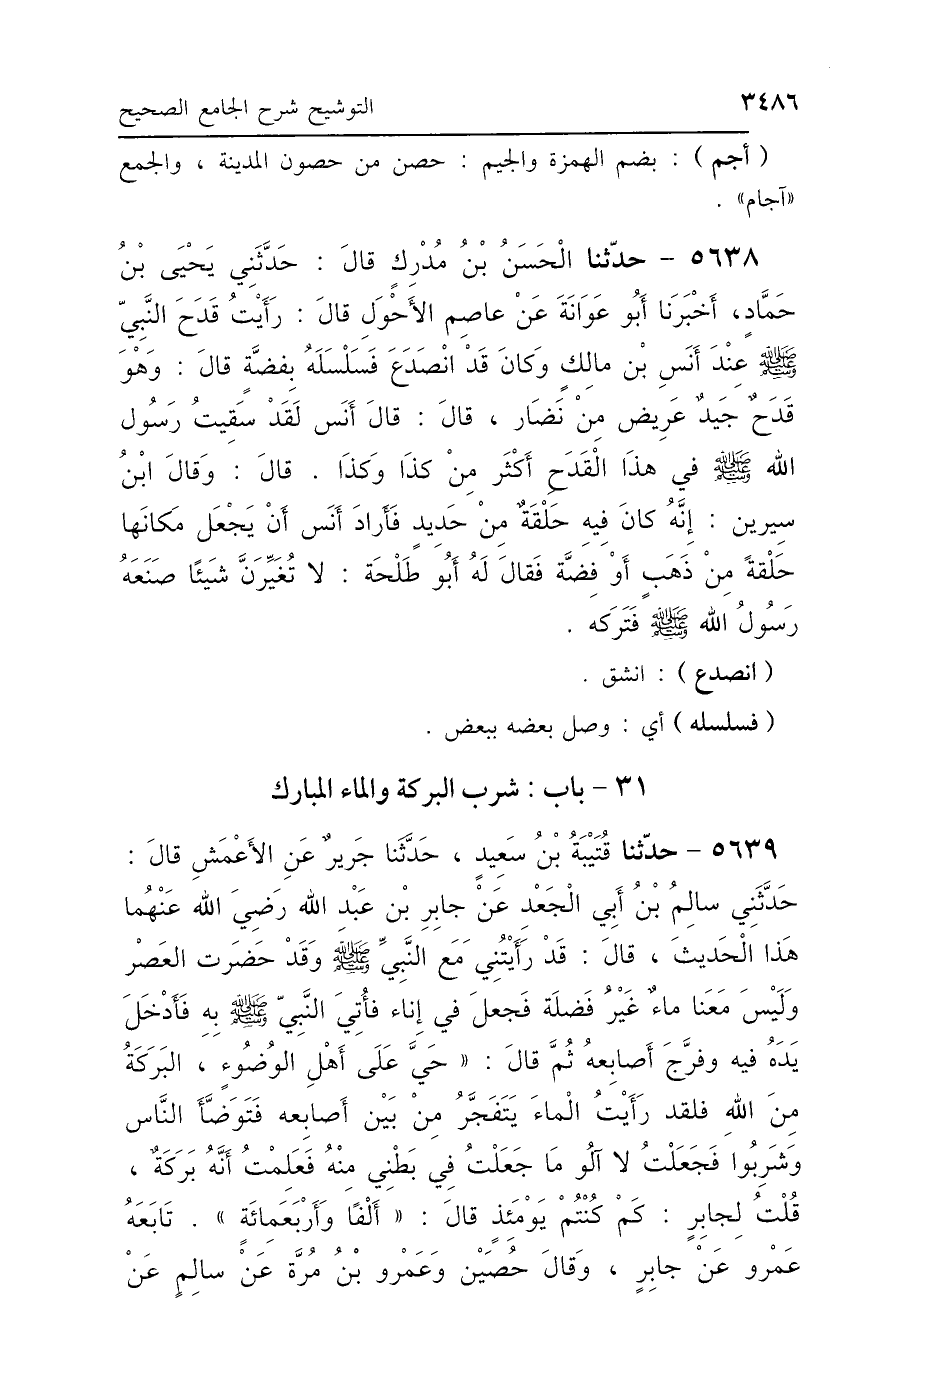 ٣٤٨٦ التوشيح شرح الجامع الصحيح
( أجم ) : بضم الهمزة والجيم : حصن من حصون المدينة ، والجمع
«آجام» .
٥٦٣٨ - حدّثنا الْحَسَنُ بْنُ مُدْرِكٍ قالَ : حَدَّثَنِي يَحْيَى بْنُ
حَمَّادٍ، أَخْبَرَنَا أَبُو عَوَانَةَ عَنْ عاصِمِ الأَحْوَلِ قالَ : رَأَيْتُ قَدَحَ النَّبِيِّ
ﷺ عِنْدَ أَنَسِ بْنِ مالِكٍ وَكانَ قَدْ انْصَدَعَ فَسَلْسَلَهُ بِفضَّةٍ قالَ : وَهْوَ
قَدَحٌ جَيدٌ عَرِيض مِنْ نَضَارٍ ، قالَ : قالَ أَنَس لَقَدْ سَقَيتُ رَسُول
الله ﷺ في هذَا الْقَدَحِ أَكْثَر مِنْ كذَا وَكذَا . قالَ : وَقالَ ابْنُ
سِيرِين : إِنَّهُ كانَ فِيهِ حَلْقَةٌ مِنْ حَدِيدٍ فَأَرادَ أَنَس أَنْ يَجْعَل مَكانَها
حَلْقةً مِنْ ذَهَبٍ أَوْ فِضَّة فَقالَ لَهُ أَبُو طَلْحَة : لا تُغَيِّرَنَّ شَيئًا صَنَعَهُ
رَسُولُ الله ﷺ فَتَرَكه .
( انصدع ) : انشق .
( فسلسله ) أي : وصل بعضه ببعض .
٣١ - باب : شرب البركة والماء المبارك
٥٦٣٩ - حدّثنا قُتَيْبَةُ بْنُ سَعِيدٍ ، حَدَّثَنا جَرِيرٌ عَنِ الأَعْمَشِ قالَ :
حَدَّثَنِي سالِمُ بْنُ أَبِي الْجَعْدِ عَنْ جابِرِ بْنِ عَبْدِ الله رَضِيَ الله عَنْهُما
هَذا الْحَدِيثَ ، قالَ : قَدْ رَأَيْتُنِي مَعَ النَّبِيِّ ﷺ وَقَدْ حَضَرَت العَصْر
وَلَيْسَ مَعَنا ماءٌ غَيْرُ فَضلَة فَجعلَ في إناء فأُتِيَ النَّبِيّ ﷺ بِهِ فَأَدْخَلَ
يَدَهُ فيه وفرَّجَ أَصابِعهُ ثُمَّ قالَ : « حَيَّ عَلَى أَهْلِ الوُضُوءِ ، البَرَكَةُ
مِنَ الله فلقد رَأَيْتُ الْماءَ يَتَفَجَّرُ مِنْ بَيْنِ أصابعه فَتَوَضَّأَ النَّاس
وَشَرِبُوا فَجَعَلْتُ لا آلُو مَا جَعَلْتُ فِي بَطْنِي مِنْهُ فَعَلِمْتُ أَنَّهُ بَرَكَةٌ ،
قُلْتُ لِجابِرٍ : كَمْ كُنْتُمْ يَوْمَئذٍ قالَ : « أَلْفًا وَأَرْبَعَمائَةٍ » . تابَعَهُ
عَمْرو عَنْ جابِرٍ ، وَقالَ حُصَيْن وَعَمْرو بْنُ مُرَّة عَنْ سالِمٍ عَنْ